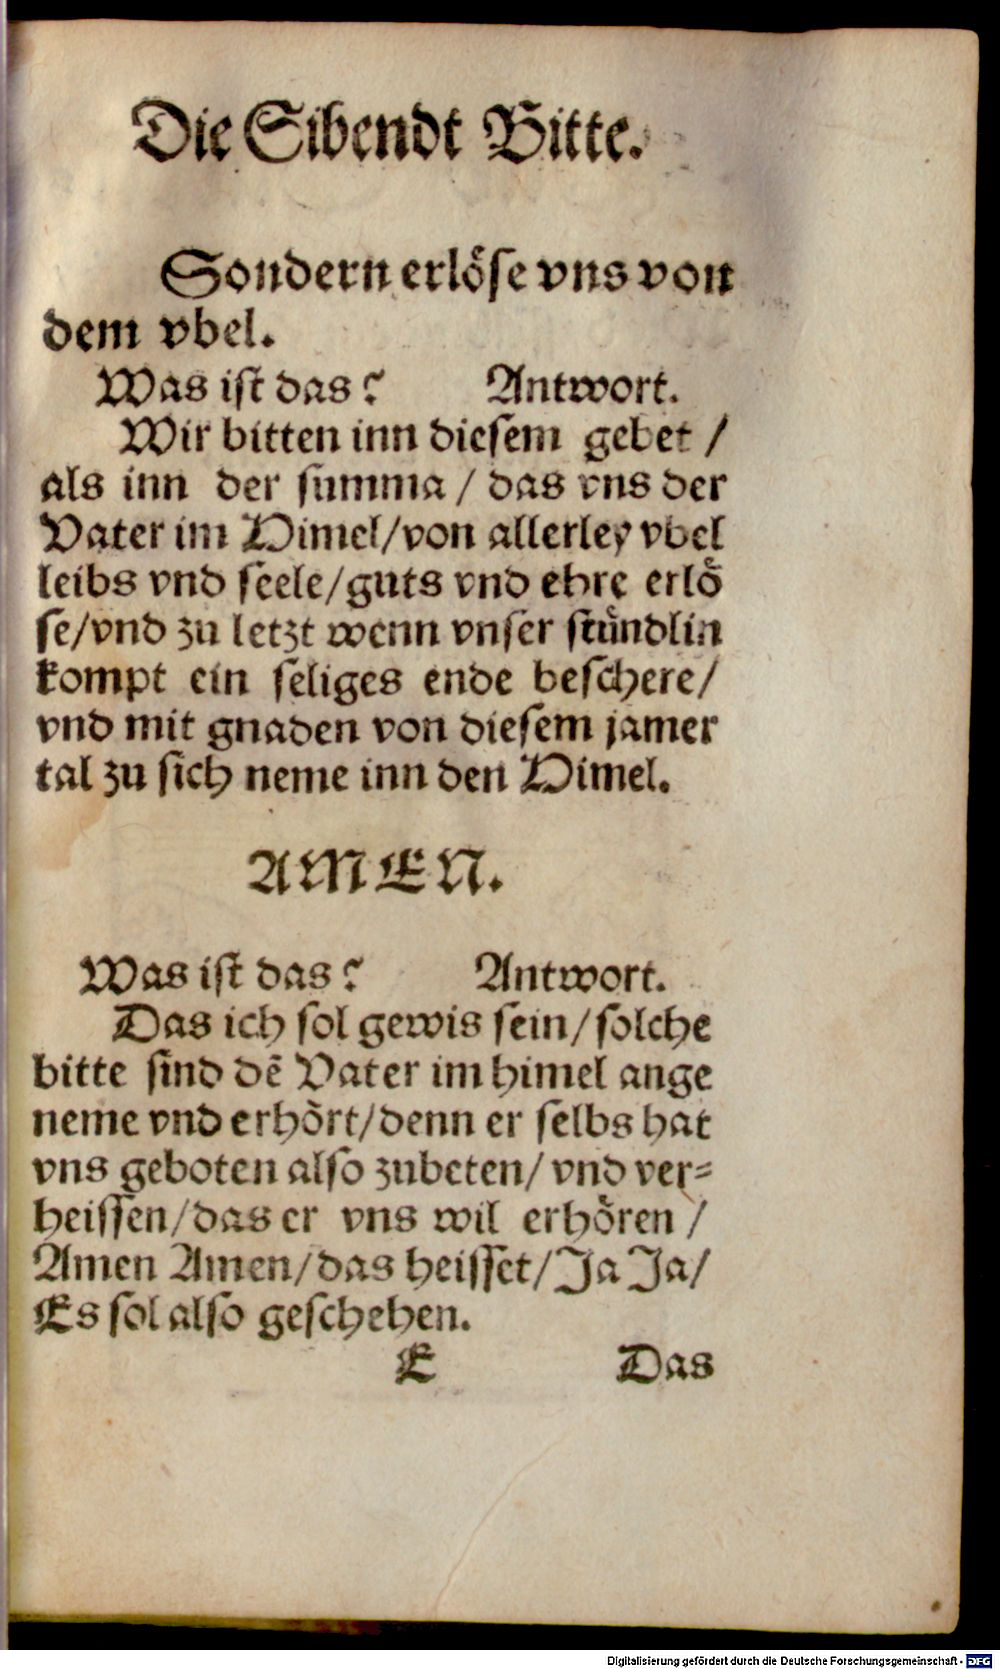 Die Sibendt Bitte.
Sondern erlöse vns von
dem vbel.
Was ist das? Antwort.
Wir bitten inn diesem gebet /
als inn der summa / das vns der
Vater im Himel/von allerley vbel
leibs vnd seele/guts vnd ehre erlö
se/vnd zu letzt wenn vnser stündlin
kompt ein seliges ende beschere/
vnd mit gnaden von diesem jamer
tal zu sich neme inn den Himel.
AMEN.
Was ist das? Antwort.
Das ich sol gewis sein/solche
bitte sind dē Vater im himel ange
neme vnd erhört/denn er selbs hat
vns geboten also zubeten/ vnd ver⸗
heissen/das er vns wil erhören /
Amen Amen/das heisset/Ja Ja/
Es sol also geschehen.
E Das
Digitalisierung gefördert durch die Deutsche Forschungsgemeinschaft - DFG